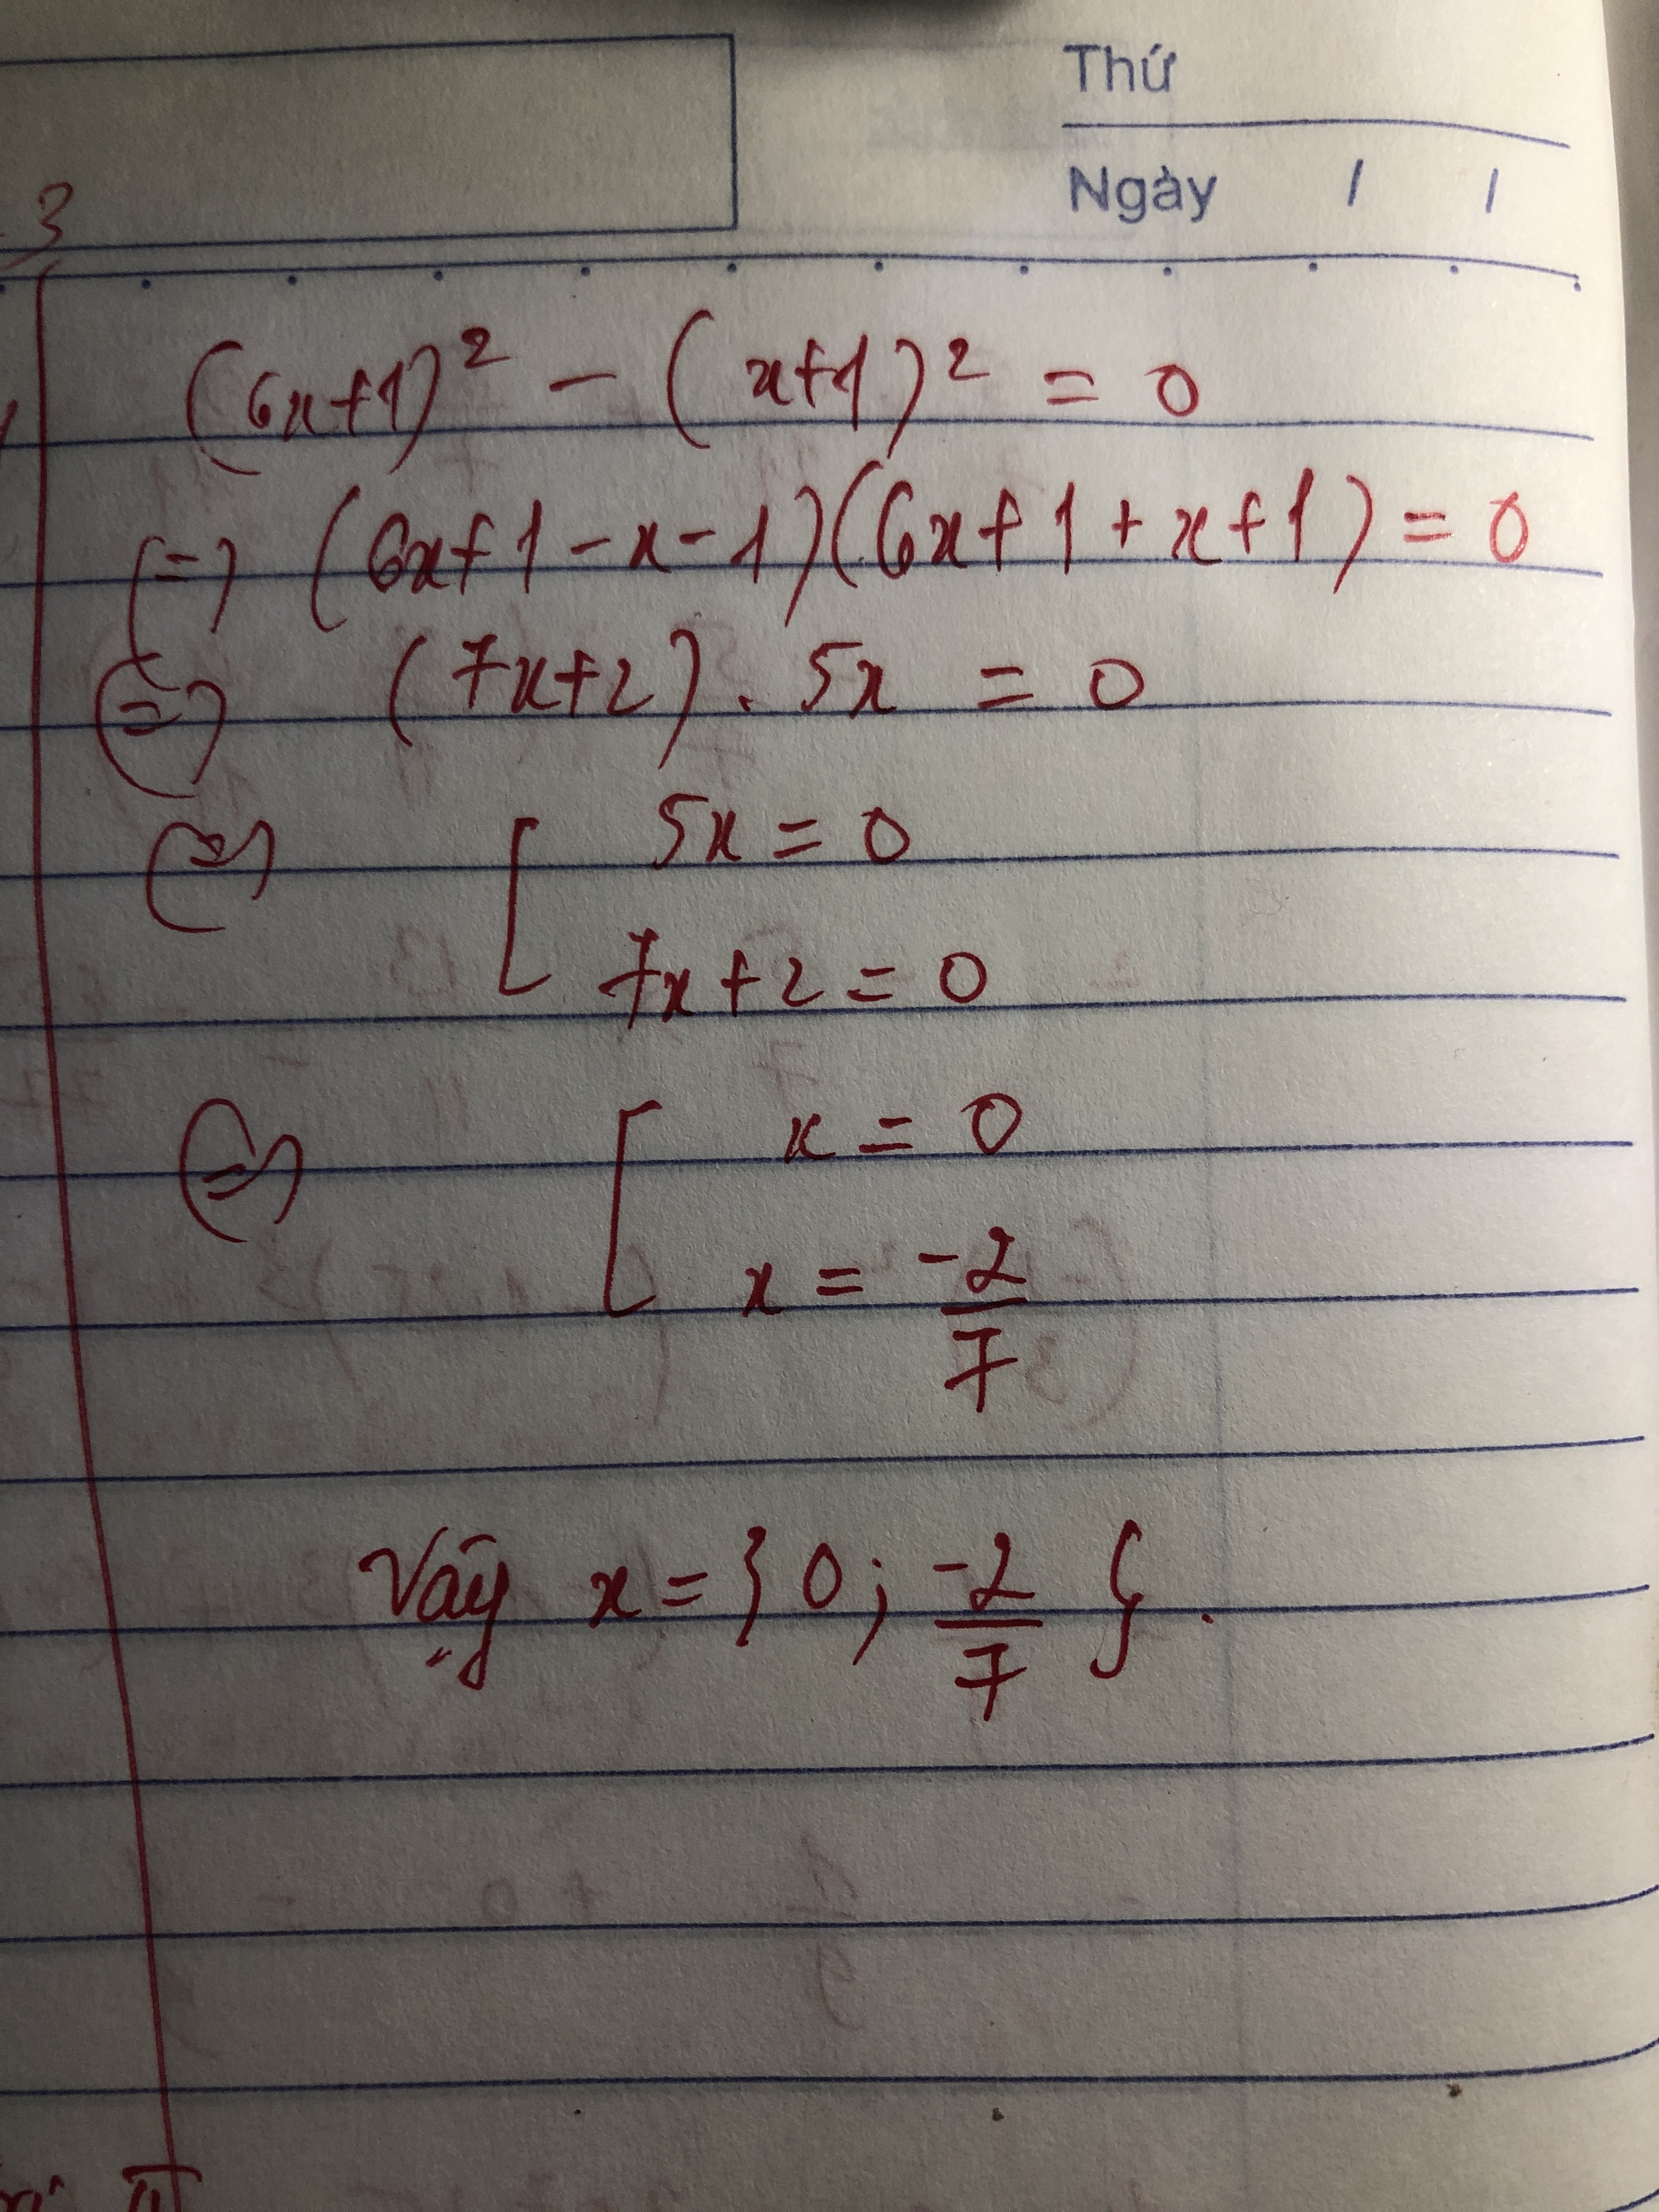 Thứ
Ngày / /
3
(6x+1)² - (x+1)² = 0
(=) (6x+1-x-1)(6x+1+x+1) = 0
(=) (7x+2) . 5x = 0
(=) [ 5x = 0
7x+2 = 0
(=) [ x = 0
x = -2/7
Vậy x = } 0; -2/7 } .
II